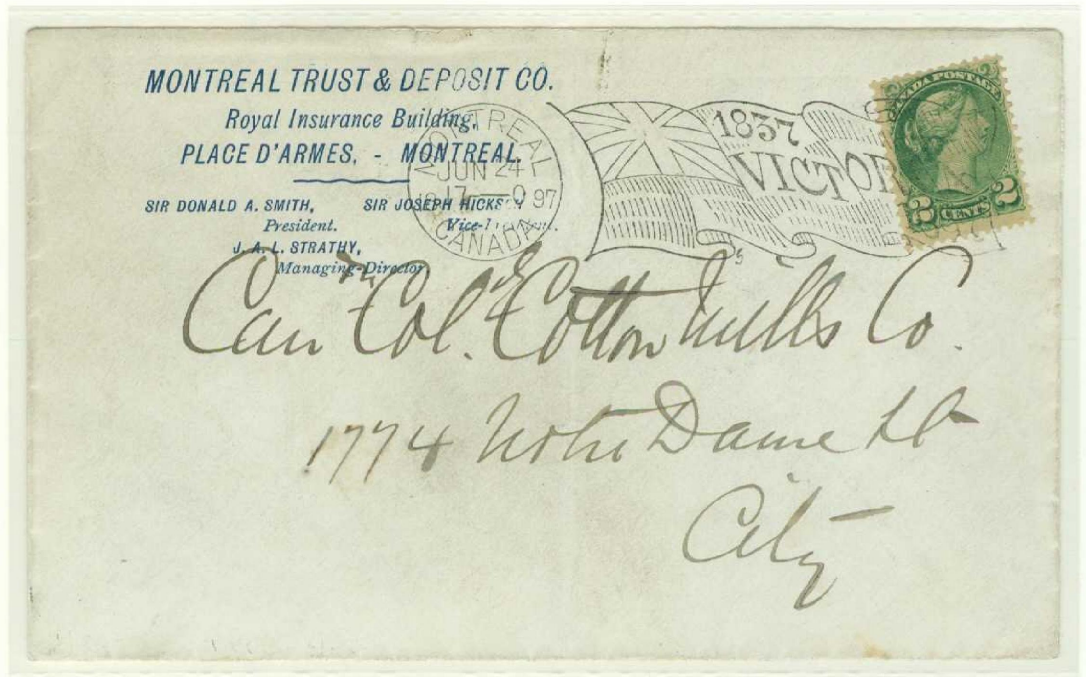 MONTREAL TRUST & DEPOSIT CO.
Royal Insurance Building,
PLACE D'ARMES, - MONTREAL.
SIR DONALD A. SMITH, SIR JOSEPH HICKSON
President. Vice-President.
J. A. L. STRATHY,
Managing-Director.
MONTREAL
JUN 24
17 — 0
97
CANADA
1837
VICTOR
CANADA POSTAGE
2 CENTS 2
The
Can Col. Cotton Mills Co.
1774 Notre Dame St
City